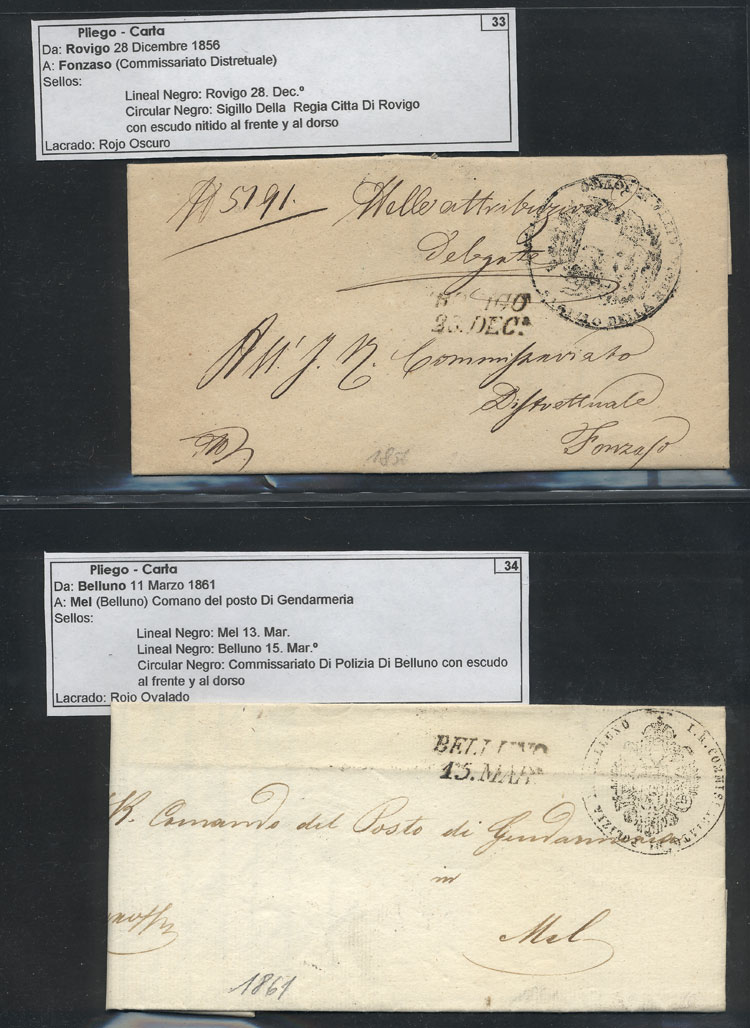 33
Pliego - Carta
Da: Rovigo 28 Dicembre 1856
A: Fonzaso (Commissariato Distretuale)
Sellos:
Lineal Negro: Rovigo 28. Dec.º
Circular Negro: Sigillo Della Regia Citta Di Rovigo
con escudo nitido al frente y al dorso
Lacrado: Rojo Oscuro
Nº 5191.
Delegate
SIGILLO DELLA
DEC.
All' I. R. Commissariato
Distrettuale
Fonzaso
1856
34
Pliego - Carta
Da: Belluno 11 Marzo 1861
A: Mel (Belluno) Comano del posto Di Gendarmeria
Sellos:
Lineal Negro: Mel 13. Mar.
Lineal Negro: Belluno 15. Mar.º
Circular Negro: Commissariato Di Polizia Di Belluno con escudo
al frente y al dorso
Lacrado: Rojo Ovalado
BELLUNO
15. MAR.
I. R. COMMISSARIATO
POLIZIA BELLUNO
R. Comando del Posto di Gendarmeria
in
Mel
1861